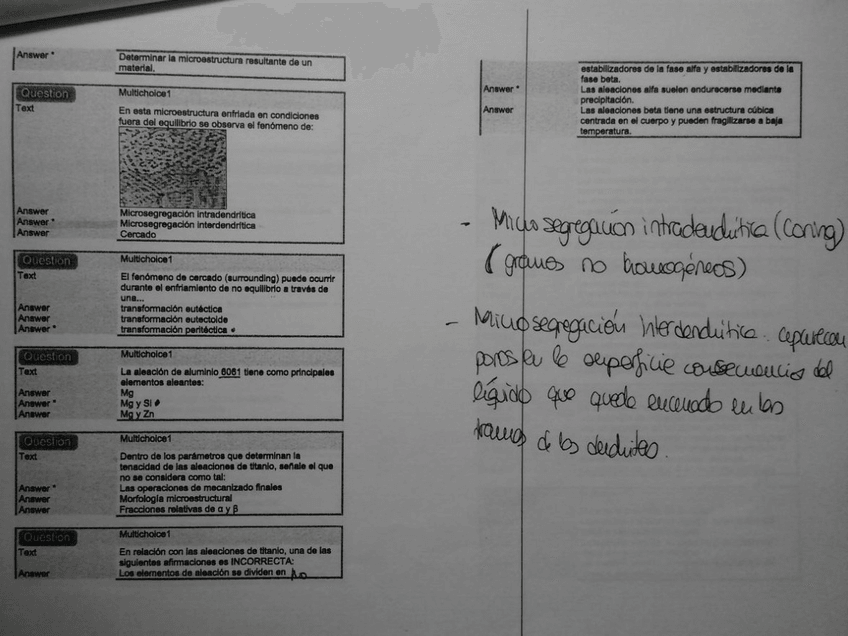 Answer *
Determinar la microestructura resultante de un
material.
Question
Multichoice1
Text
En esta microestructura enfriada en condiciones
fuera del equilibrio se observa el fenómeno de:
Answer
Microsegregación intradendrítica
Answer *
Microsegregación interdendrítica
Answer
Cercado
Question
Multichoice1
Text
El fenómeno de cercado (surrounding) puede ocurrir
durante el enfriamiento de no equilibrio a través de
una...
Answer
transformación eutéctica
Answer
transformación eutectoide
Answer *
transformación peritéctica
Question
Multichoice1
Text
La aleación de aluminio 6061 tiene como principales
elementos aleantes:
Answer
Mg
Answer *
Mg y Si
Answer
Mg y Zn
Question
Multichoice1
Text
Dentro de los parámetros que determinan la
tenacidad de las aleaciones de titanio, señale el que
no se considera como tal:
Answer *
Las operaciones de mecanizado finales
Answer
Morfología microestructural
Answer
Fracciones relativas de α y β
Question
Multichoice1
Text
En relación con las aleaciones de titanio, una de las
siguientes afirmaciones es INCORRECTA:
Answer
Los elementos de aleación se dividen en
estabilizadores de la fase alfa y estabilizadores de la
fase beta.
Answer *
Las aleaciones alfa suelen endurecerse mediante
precipitación.
Answer
Las aleaciones beta tiene una estructura cúbica
centrada en el cuerpo y pueden fragilizarse a baja
temperatura.
- Micro segregación intradendrítica (Coring)
(granos no homogéneos)
- Microsegregación Interdendrítica. aparecen
poros en la superficie consecuencias del
líquido que queda encerrado en las
ramas de las dendritas.